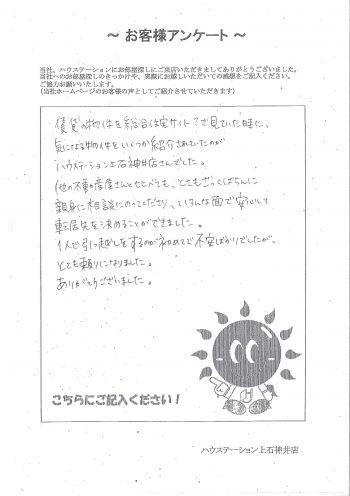 ～ お客様アンケート ～
当社、ハウステーションにお部屋探しにご来店いただきましてありがとうございました。
当社へのお部屋探しのきっかけや、実際にお越しいただいての感想をご記入ください。
ご協力お願いいたします。
(当社ホームページのお客様の声としてご紹介させていただきます)
賃貸の物件を総合住宅サイトで見ていた時に、
気になる物件をいくつか紹介されていたのが
ハウステーション上石神井店さんでした。
他の不動産屋さんとくらべても、とてもざっくばらんに
親身に相談にのってくださり、いろんな面で安心して
転居先を決めることができました。
1人で引っ越しをするのが初めてで不安ばかりでしたが、
とても頼りになりました。
ありがとうございました。
こちらにご記入ください!
ハウステーション上石神井店